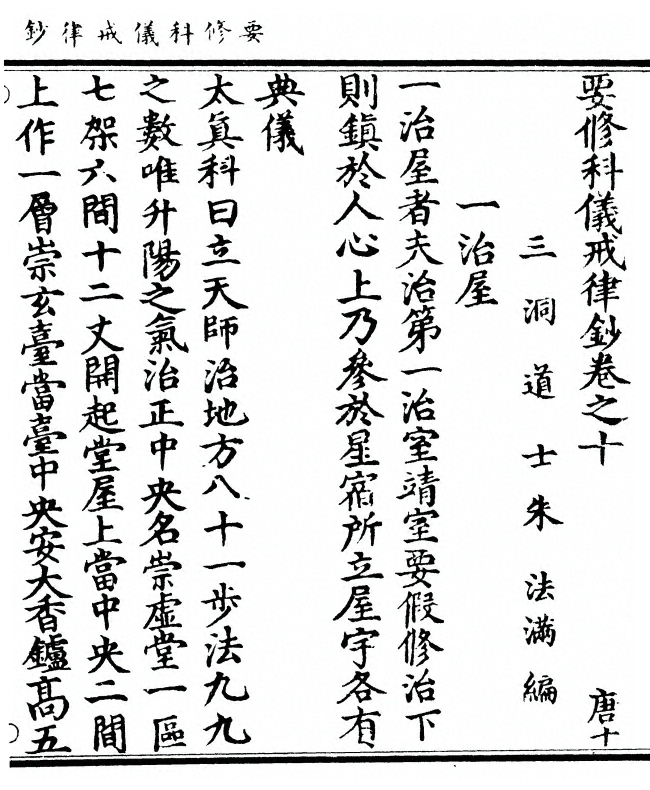 要修科儀戒律鈔
要修科儀戒律鈔卷之十
唐十
三洞道士朱法滿編
一治屋
一治屋者夫治第一治室靖室要假修治下
則鎮於人心上乃參於星宿所立屋宇各有
典儀
太眞科曰立天師治地方八十一步法九九
之數唯升陽之氣治正中央名崇虛堂一區
七架六間十二丈開起堂屋上當中央二間
上作一層崇玄臺當臺中央安大香鑪高五